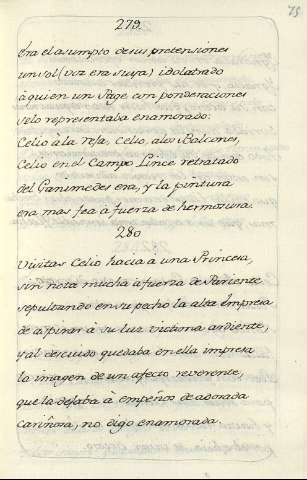 75
279.
Era el asumpto desus pretensiones
un sol (voz era suya) idolatrado
à quien un Page con ponderaciones
selo representaba enamorado:
Celio à la Resa, Celio, alos Balcones,
Celio en el Campo Lince retratado
del Ganimedes era, y la pintura
era mas fea à fuerza de hermosura.
280
Visitas Celio hacia à una Princesa,
sin nota mucha à fuerza de Pariente
sepultando en su pecho la alta Empresa
de aspirar à su luz victima ardiente,
y al descuido quedaba en ella impresa
la imagen de un afecto reverente,
que la dejaba à empeños de adorada
cariñosa, no digo enamorada.